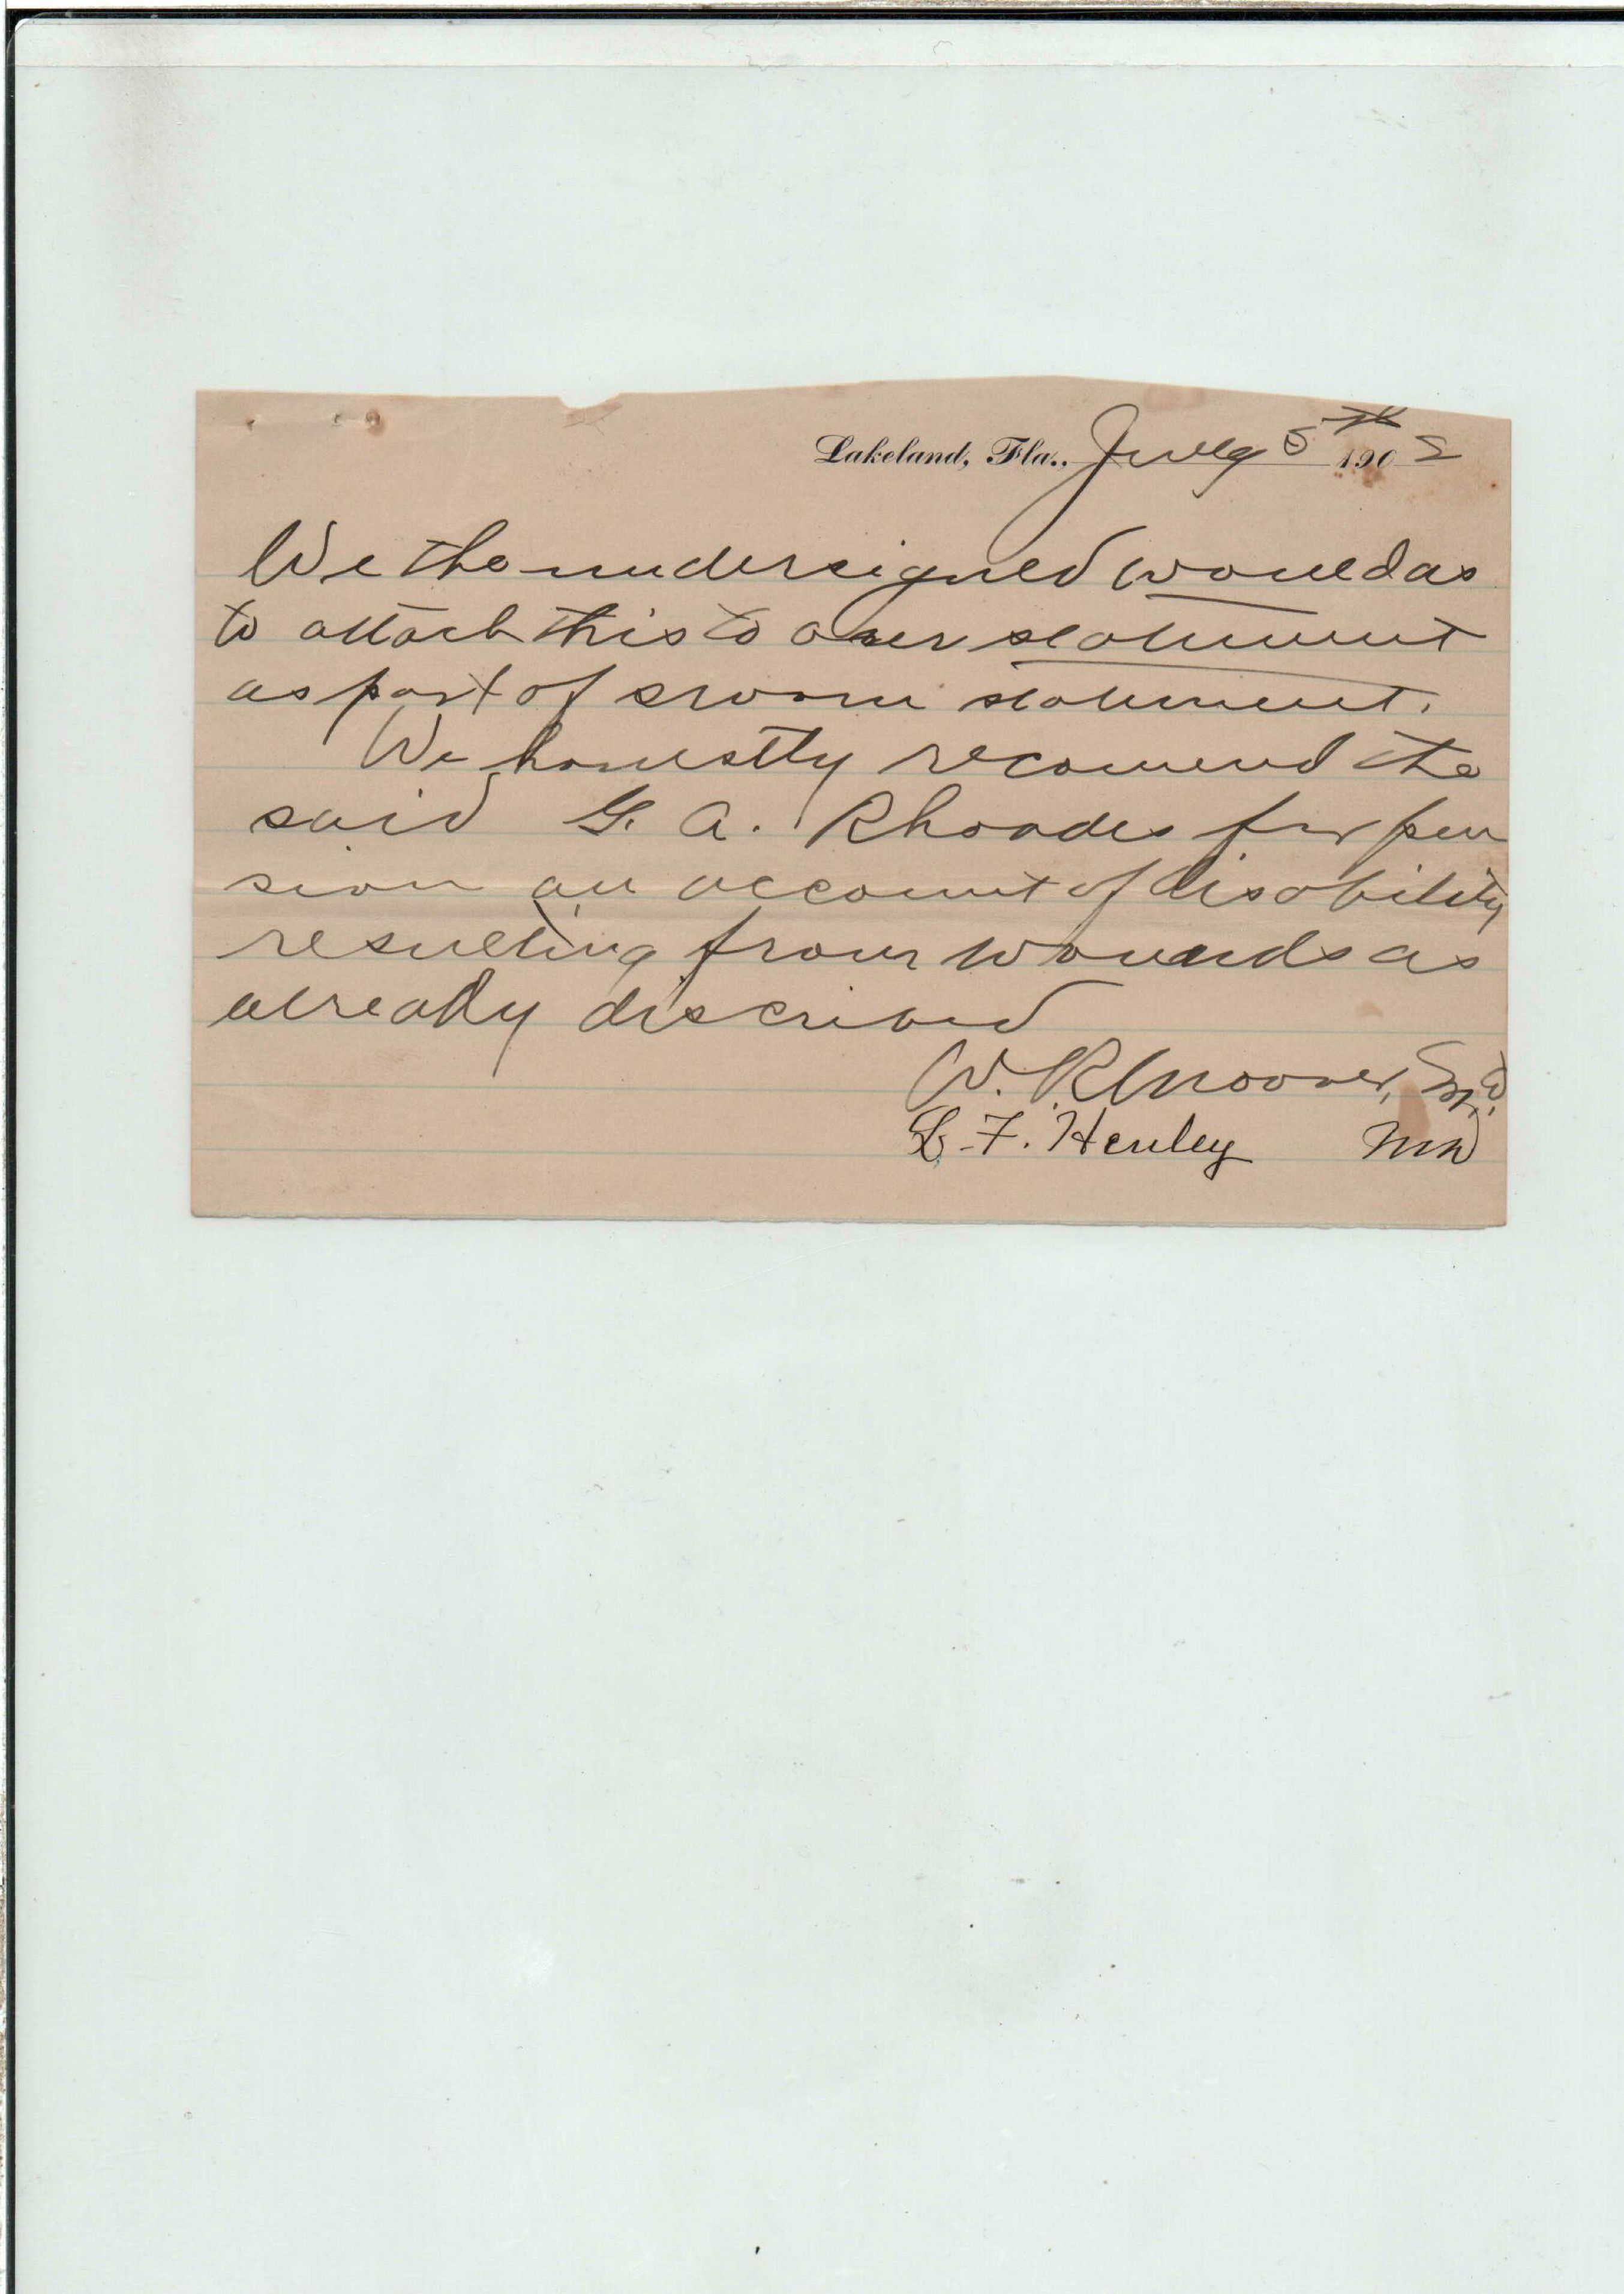 Lakeland, Fla., July 5th 1902
We the undersigned would as
to attach this to over statement
as part of sworn statement.
We honestly recomend the
said G. A. Rhoades for pen
sion on account of disability
resulting from wounds as
already discribed
W. R. Groover, M.D.
L. F. Henley MD